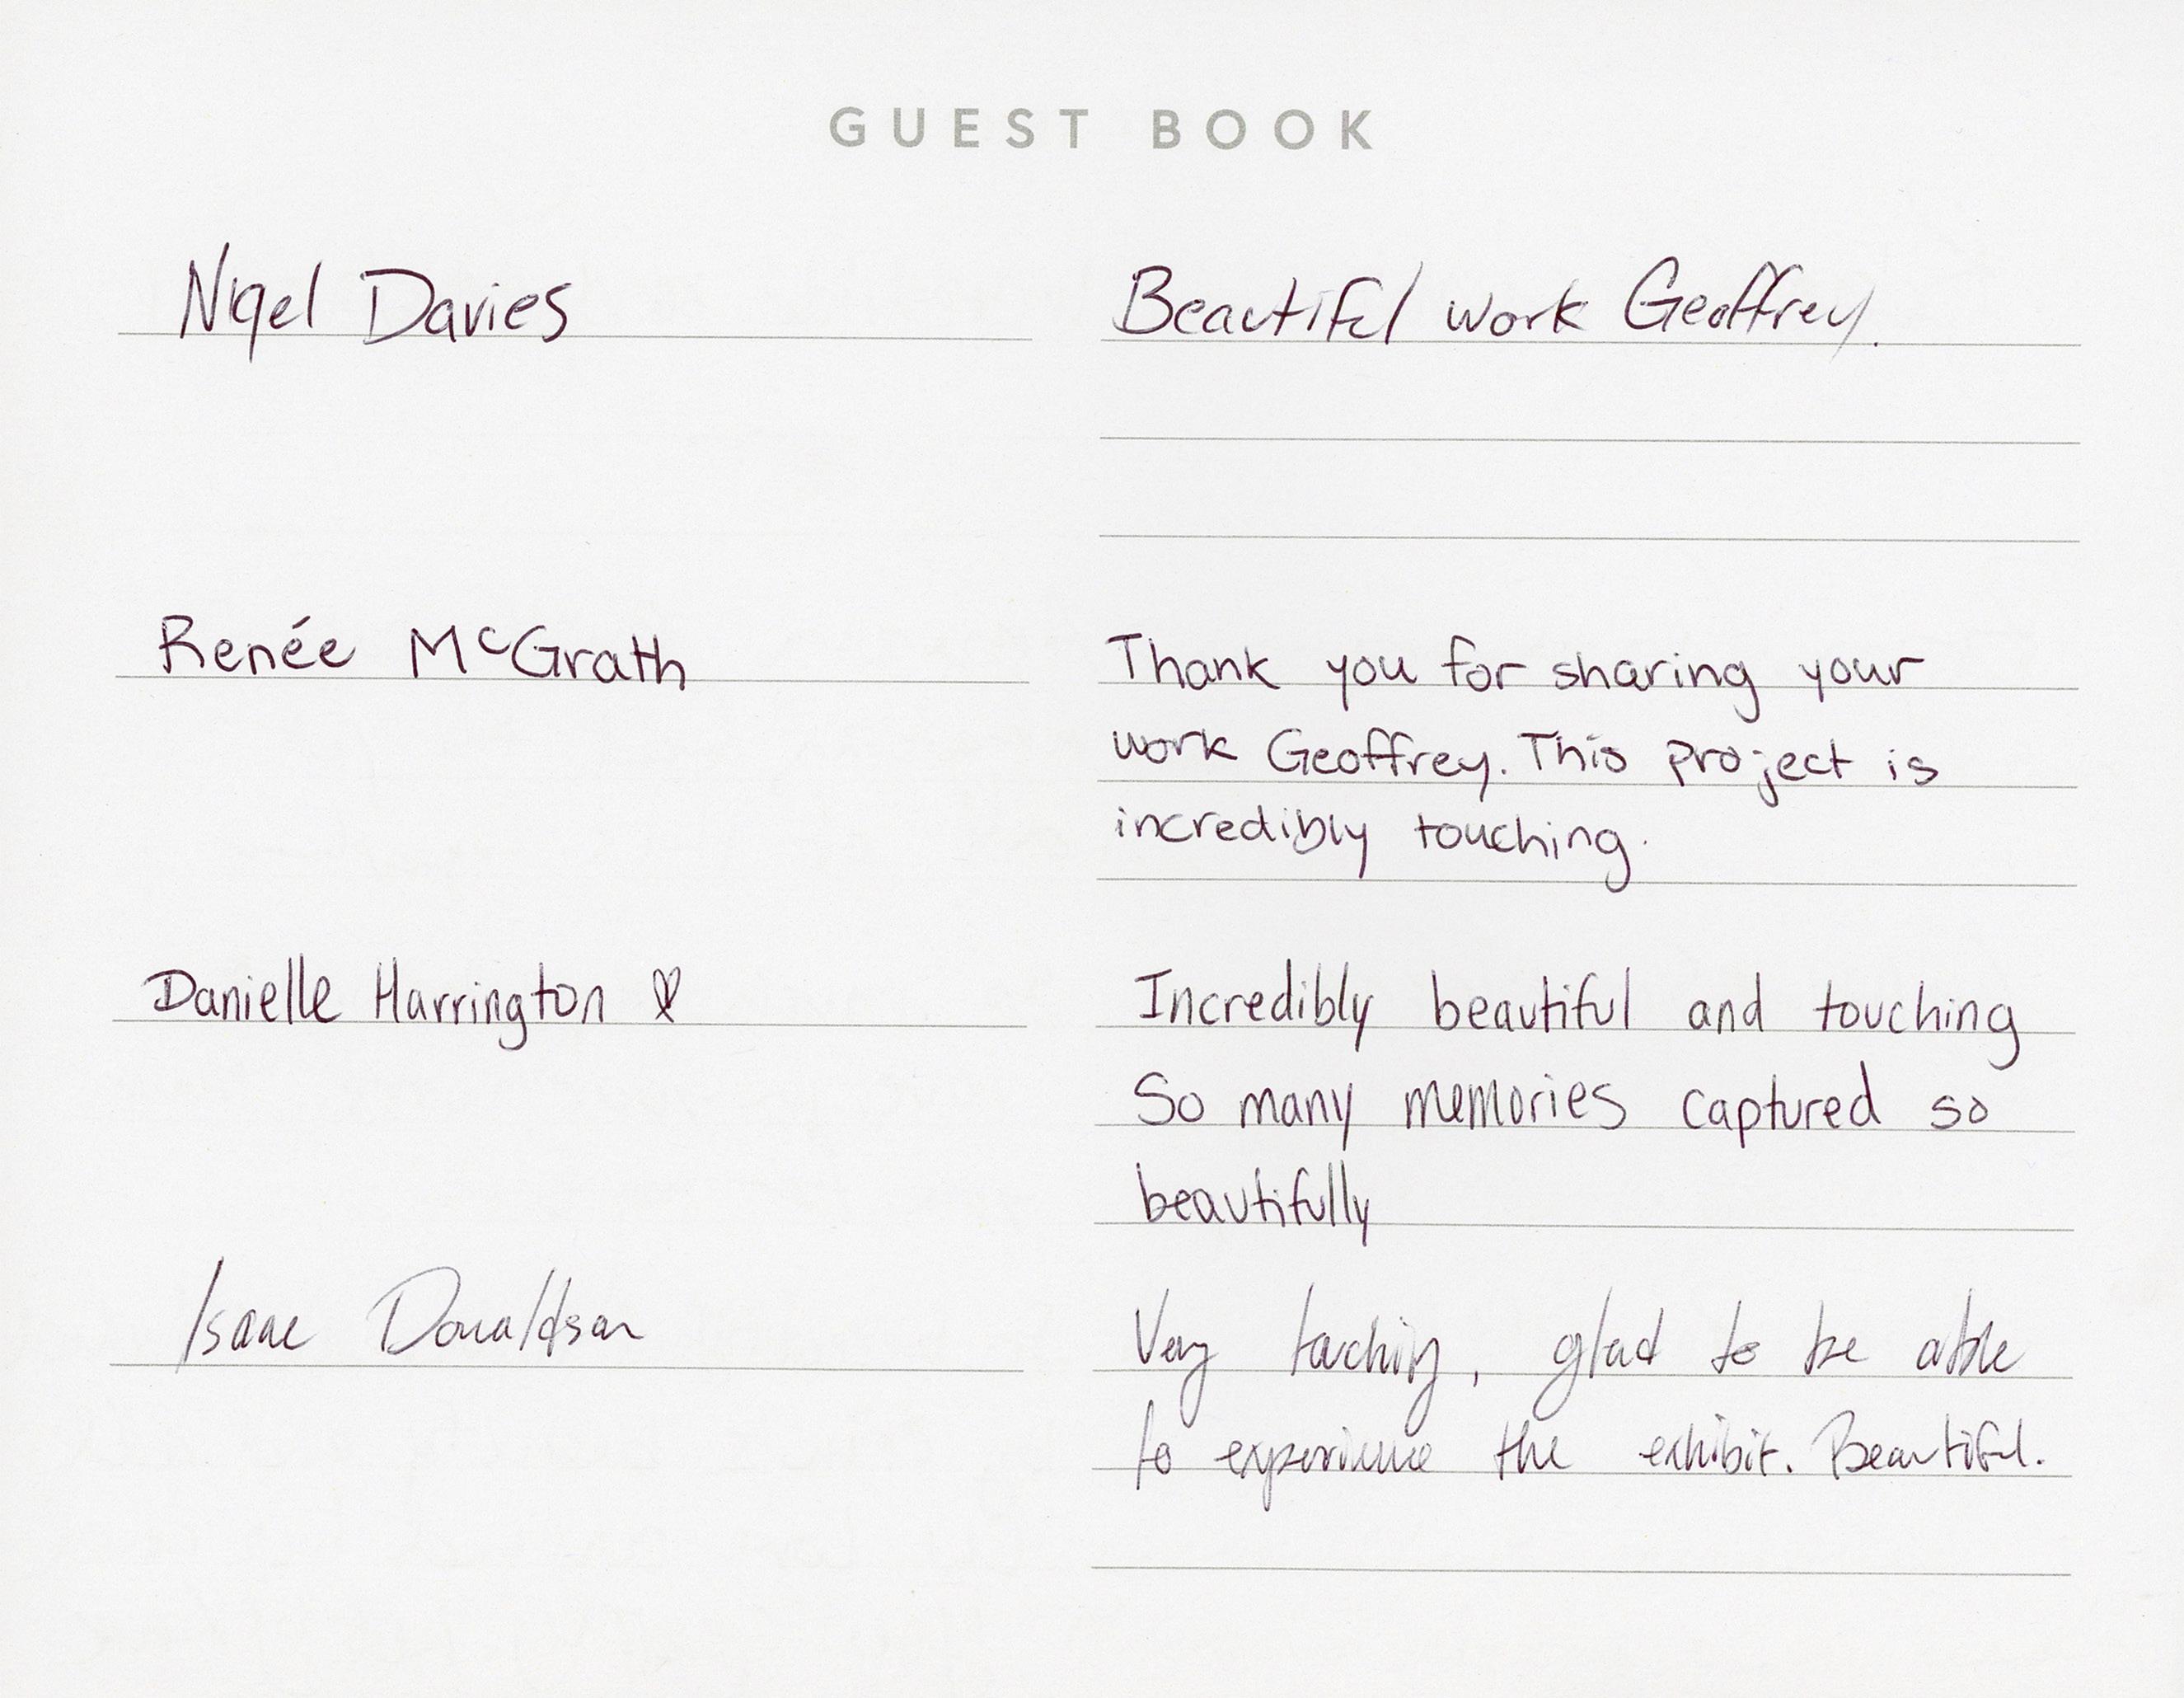 GUEST BOOK
Nigel Davies
Beautiful work Geoffrey.
Renée McGrath
Thank you for sharing your
work Geoffrey. This project is
incredibly touching.
Danielle Harrington
Incredibly beautiful and touching
So many memories captured so
beautifully
Isaac Donaldson
Very touching, glad to be able
to experience the exhibit. Beautiful.